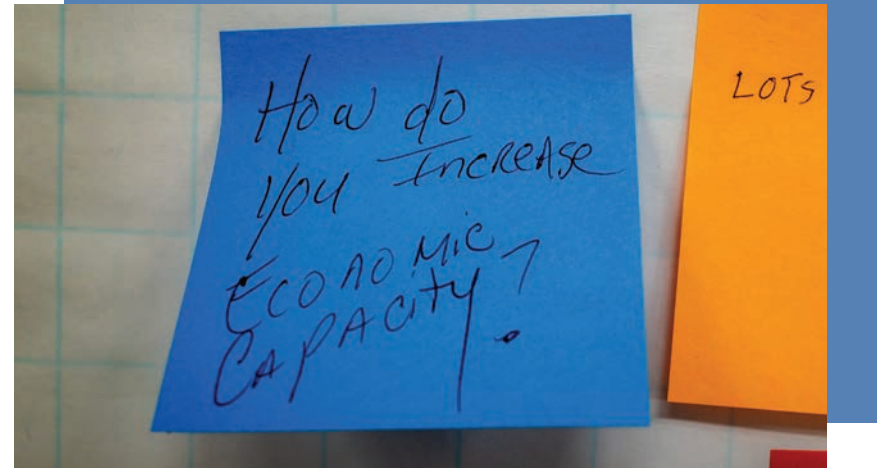 How do
you Increase
Economic
Capacity?
LOTS